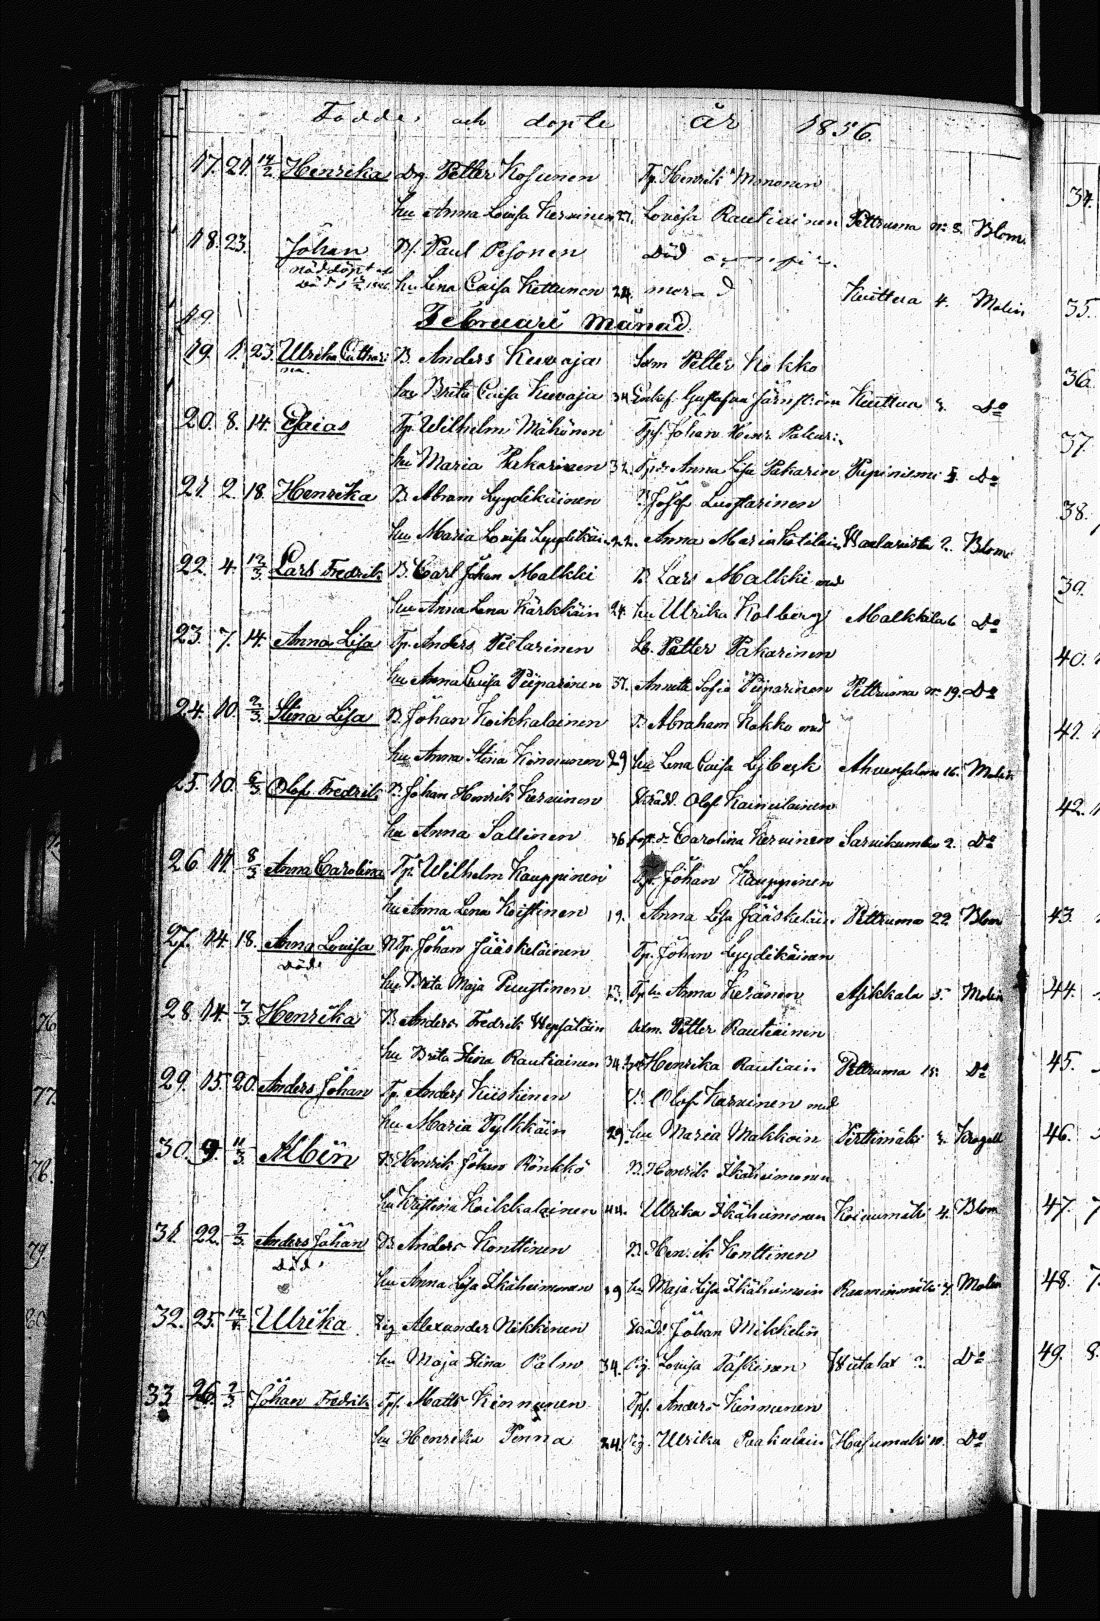 Födde och döpte år 1856.
17. 21. 14/2 Henrika Drg. Petter Kosunen Tp. Henrik Mononen
hu Anna Lovisa Kervinen 27. Lovisa Rautiainen Pettruma nr 3. Blom
18. 23. Johan Bf. Paul Pesonen Död
nöddöpt af
Död hu Lena Caisa Kettunen 24. mord Kuittua 4. Molin
19. Februari månad
19. 1. 23. Ulrika Cathari B. Anders Kuvaja Som Petter Kokko
na. hu Brita Caisa Kuvaja 34 Gustafva Järnström Kuittua 3. Do
20. 8. 14. Esaias Tp. Wilhelm Mähönen Tps. Johan Henr. Pakari
hu Maria Pakarinen 32. Tpdr Anna Lisa Pakarin Papiniemi 5. Do
21. 2. 18. Henrika B. Abram Lyydikäinen B. Josef Lustarinen
hu Maria Lovisa Lyydikäin 22. Anna Maria Kotilain 2. Blom
22. 4. 12/3 Lars Fredrik B. Carl Johan Malkki B. Lars Malkki md
hu Anna Lena Kärkkäin 24. hu Ulrika Kolberg Malkkila 6 Do
23. 7. 14. Anna Lisa Tp. Anders Pietarinen Lb. Petter Pakarinen
hu Anna Lovisa Piiparinen 37. Annette Sofia Piiparinen Pettruma nr 19. Do
24. 10. 2/3 Stina Lisa B. Johan Koikkalainen B. Abraham Kokko md
hu Anna Stina Kinnunen 29 hu Lena Caisa Lijbeck Ahvensalmi 16. Molin
25. 10. 6/3 Olof Fredrik B. Johan Henrik Kervinen Skrädd. Olof Kainulainen
hu Anna Sallinen 36 Carolina Kervinen Sarvikumbu 2. Do
26 11. 8/3 Anna Carolina Tp. Wilhelm Kauppinen Tps. Johan Kauppinen
hu Anna Lena Koistinen 19. Anna Lisa Jääskeläin Pettruma 22 Blom
27. 14. 18. Anna Lovisa Tp. Johan Jääskeläinen Tp. Johan Lyydikäinen
Död hu Brita Maja Puustinen 23. Tp hu Anna Keränen Asikkala 5. Molin
28. 14. 7/3 Henrika B. Anders Fredrik Hypsäläin Petter Rautiainen
hu Brita Stina Rautiainen 34. Henrika Rautiain Pettruma 18. Do
29. 15. 20. Anders Johan Tp. Anders Kiiskinen B. Olof Karvinen md
hu Maria Pylkkäin 29 hu Maria Makkoin Pirttimäki 3. Krogell
30. 9. 11/3 Albin B. Henrik Johan Rönkkö B. Henrik Ikäheimonen
hu Kristina Koikkalainen 44. Ulrika Ikäheimonen Koivumäki 4. Blom
31. 22. 2/3 Anders Johan B. Anders Konttinen B. Henrik Konttinen
Död hu Anna Lisa Ikäheimonen 19 hu Maja Lisa Ikäheimoin 7. Molin
32. 25. Ulrika Alexander Nikkinen Skrädd Johan Mikkelin
hu Maja Stina Palm 34. Pig. Lovisa Taskinen Do
33 26. 2/3 Johan Fredrik Tps. Matts Kinnunen Tps. Anders Kinnunen
hu Henrika Penna 24. Pig. Ulrika Paakulain Hasumäki 10. Do
34.
35.
36.
37.
38.
39.
40.
41.
42.
43.
44.
45.
46.
47.
48.
49.
76
77.
78.
79.
80